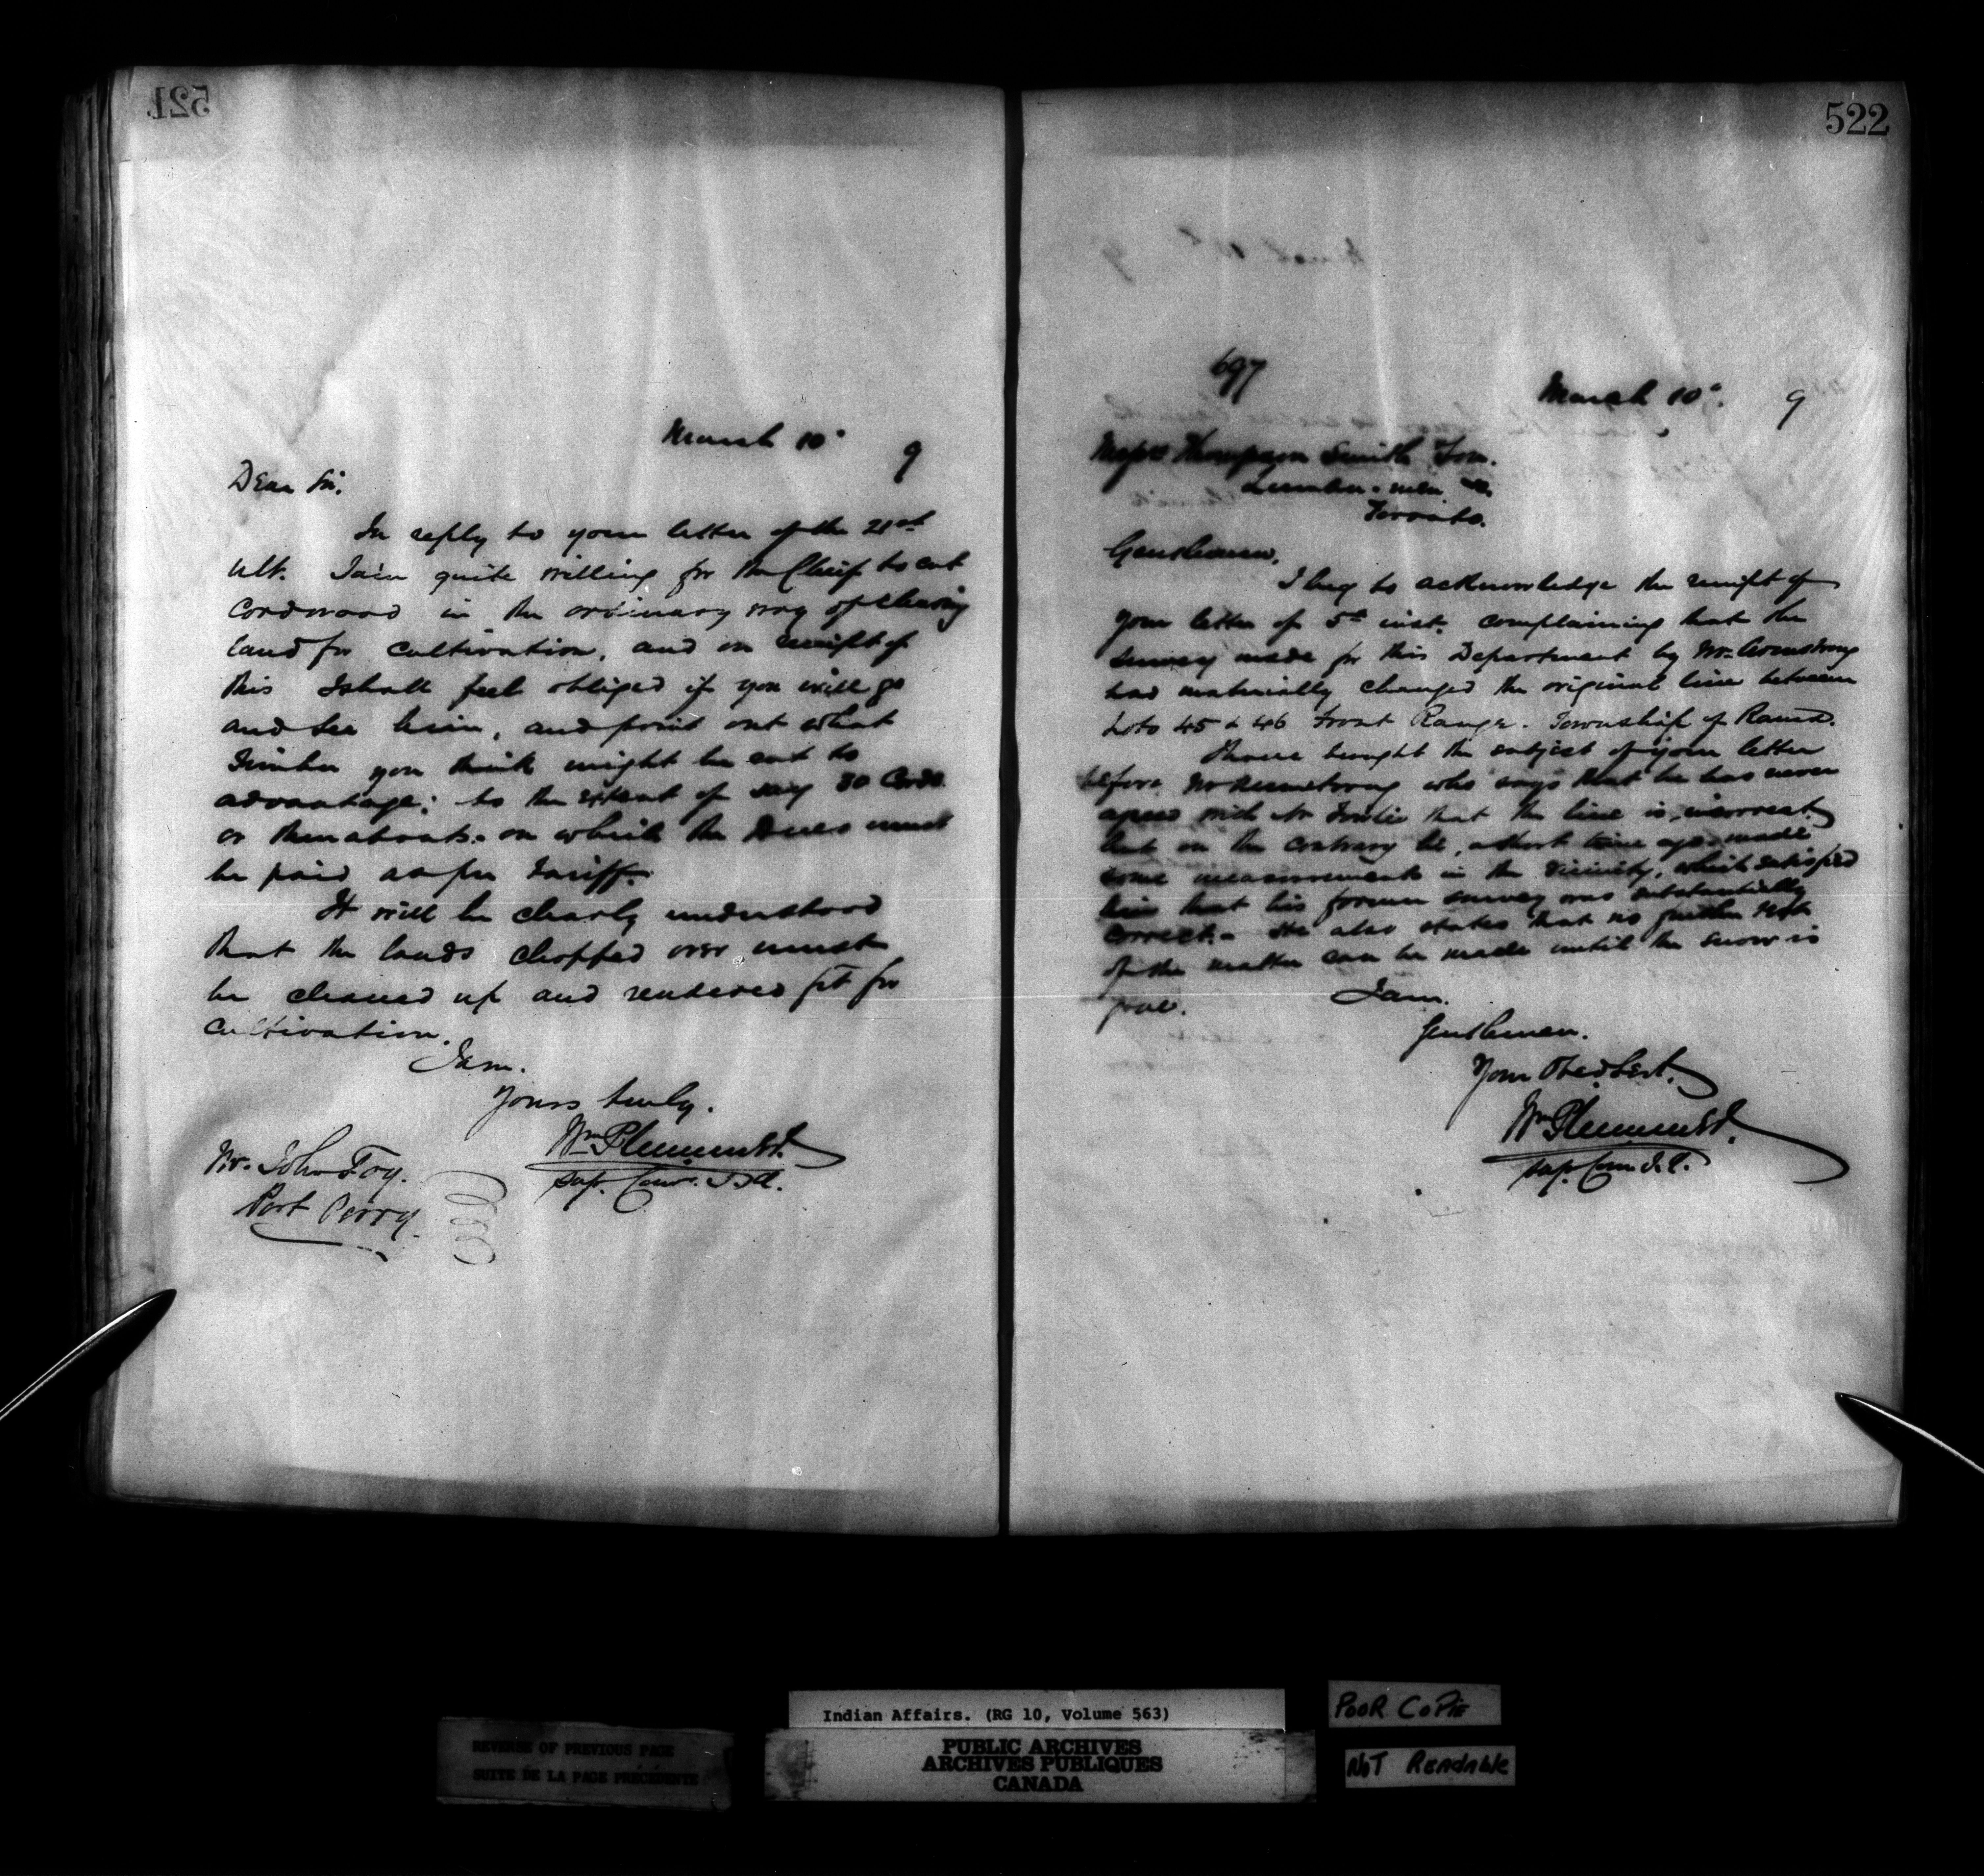 521
March 10th 9
Dear Sir.
In reply to your letter of the 21st
ult. I am quite willing for the Chief to cut
Cordwood in the ordinary way of clearing
land for cultivation, and on receipt of
this I shall feel obliged if you will go
and see him, and point out what
Timber you think might be cut to
advantage; to the extent of say 30 Cords
or thereabouts. on which the Dues must
be paid as per Tariff.
It will be clearly understood
that the lands chopped over must
be cleaned up and rendered fit for
cultivation.
I am.
Yours truly.
Wm Plummer
Sup. Comr. I.A.
Mr. John Foy.
Port Perry.
522
697
March 10th. 9
Messrs Thompson Smith Son.
Lumber-men
Toronto.
Gentlemen,
I beg to acknowledge the receipt of
your letter of 5th inst. complaining that the
survey made for this Department by Mr. Armstrong
had materially changed the original line between
Lots 45 & 46 Front Range. Township of Rama.
I have brought the subject of your letter
before Mr Armstrong who says that he has never
agreed with Mr that the line is incorrect,
but on the contrary he, a short time ago made
some measurement in the vicinity, which satisfied
him that his former survey was substantially
correct. - He also states that no further test
of the matter can be made until the snow is
gone.
I am.
Gentlemen.
Your Obed Sert.
Wm Plummer
Sup. Com. I.A.
REVERSE OF PREVIOUS PAGE
SUITE DE LA PAGE PRÉCÉDENTE
Indian Affairs. (RG 10, Volume 563)
PUBLIC ARCHIVES
ARCHIVES PUBLIQUES
CANADA
POOR COPIE
NOT Readable